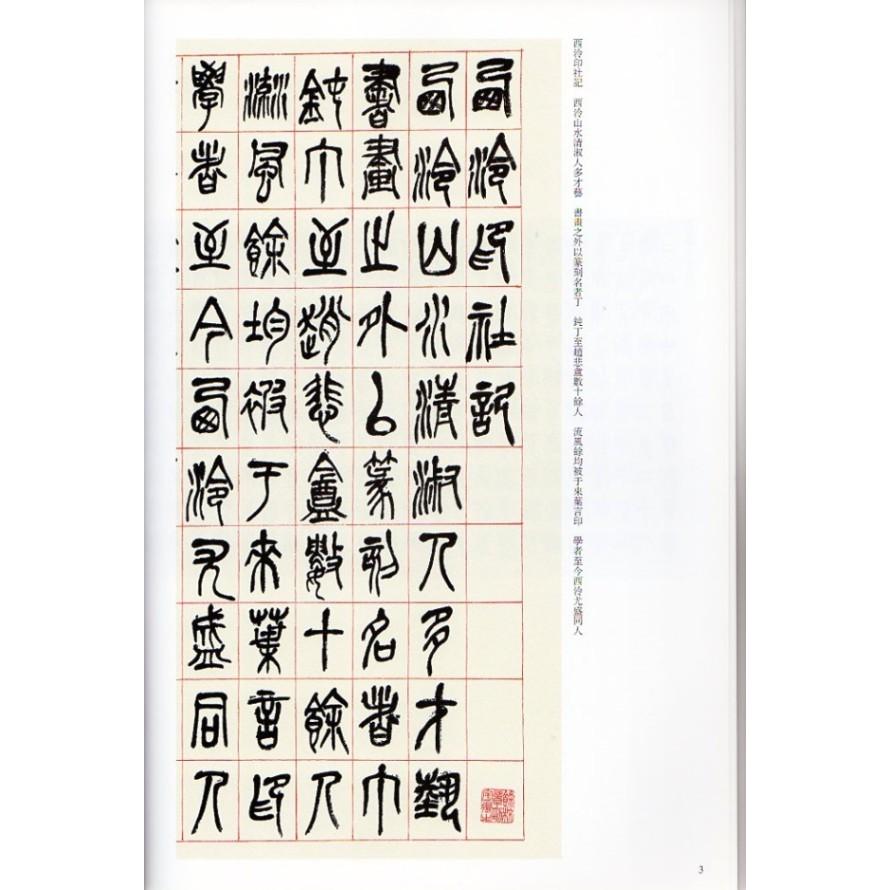 西泠印社記　西泠山水清淑人多才藝　書畫之外以篆刻名者丁　鈍丁至趙悲盦數十餘人　流風餘均被于來葉言印　學者至今西泠尤盛同人
西泠印社記
西泠山水清淑人多才藝
書畫之外以篆刻名者丁
鈍丁至趙悲盦數十餘人
流風餘均被于來葉言印
學者至今西泠尤盛同人
3